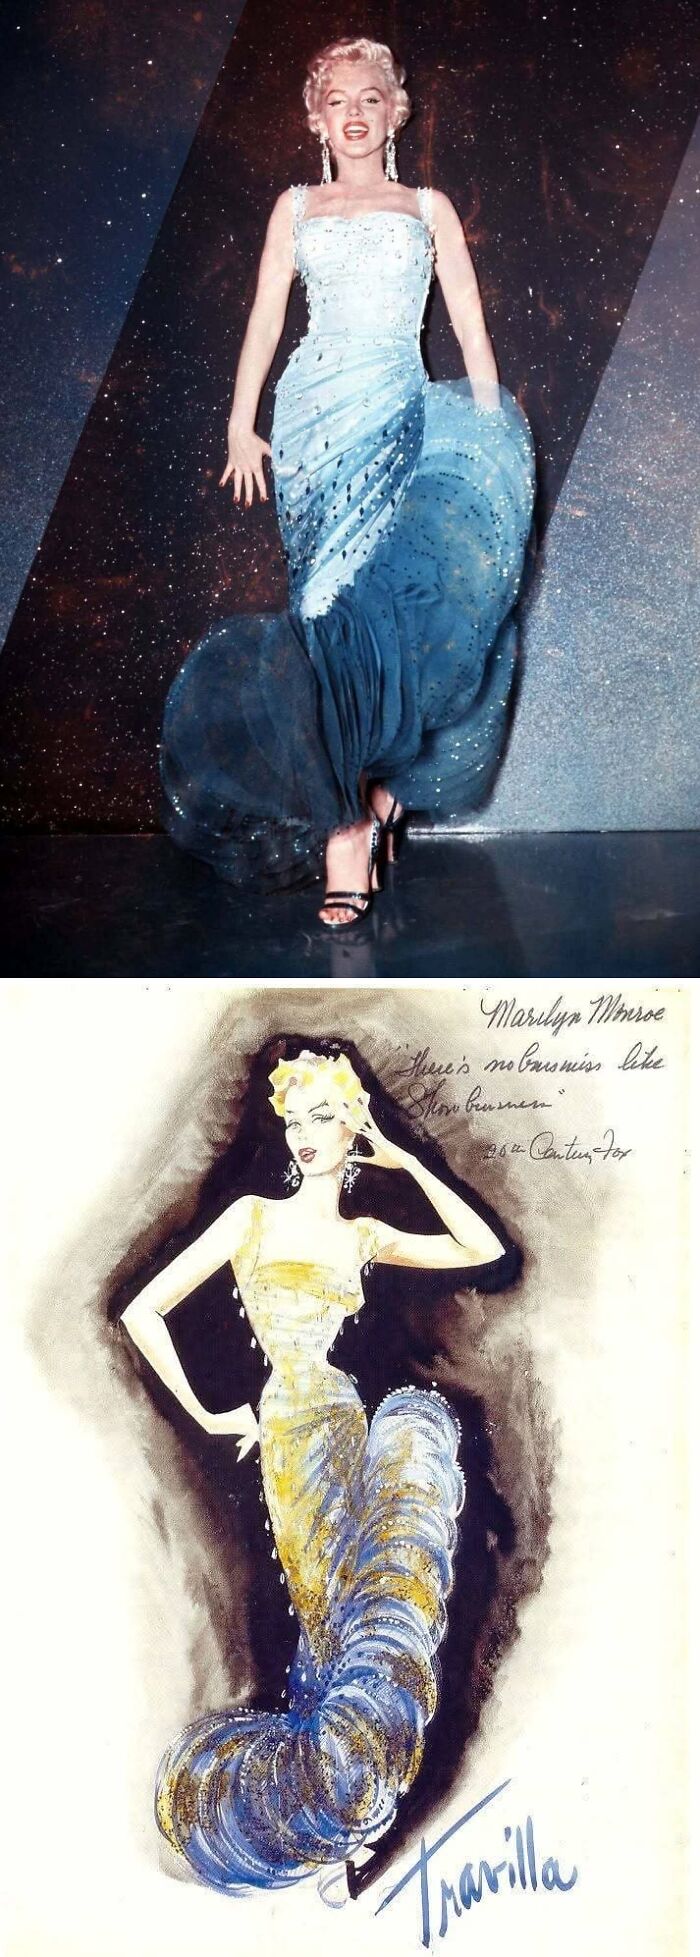 Marilyn Monroe
"There's no business like
Show business"
20th Century Fox
Travilla